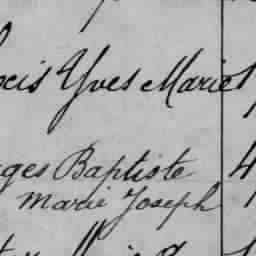 ocis Yves Marie 1
ges Baptiste 4
Marie Joseph